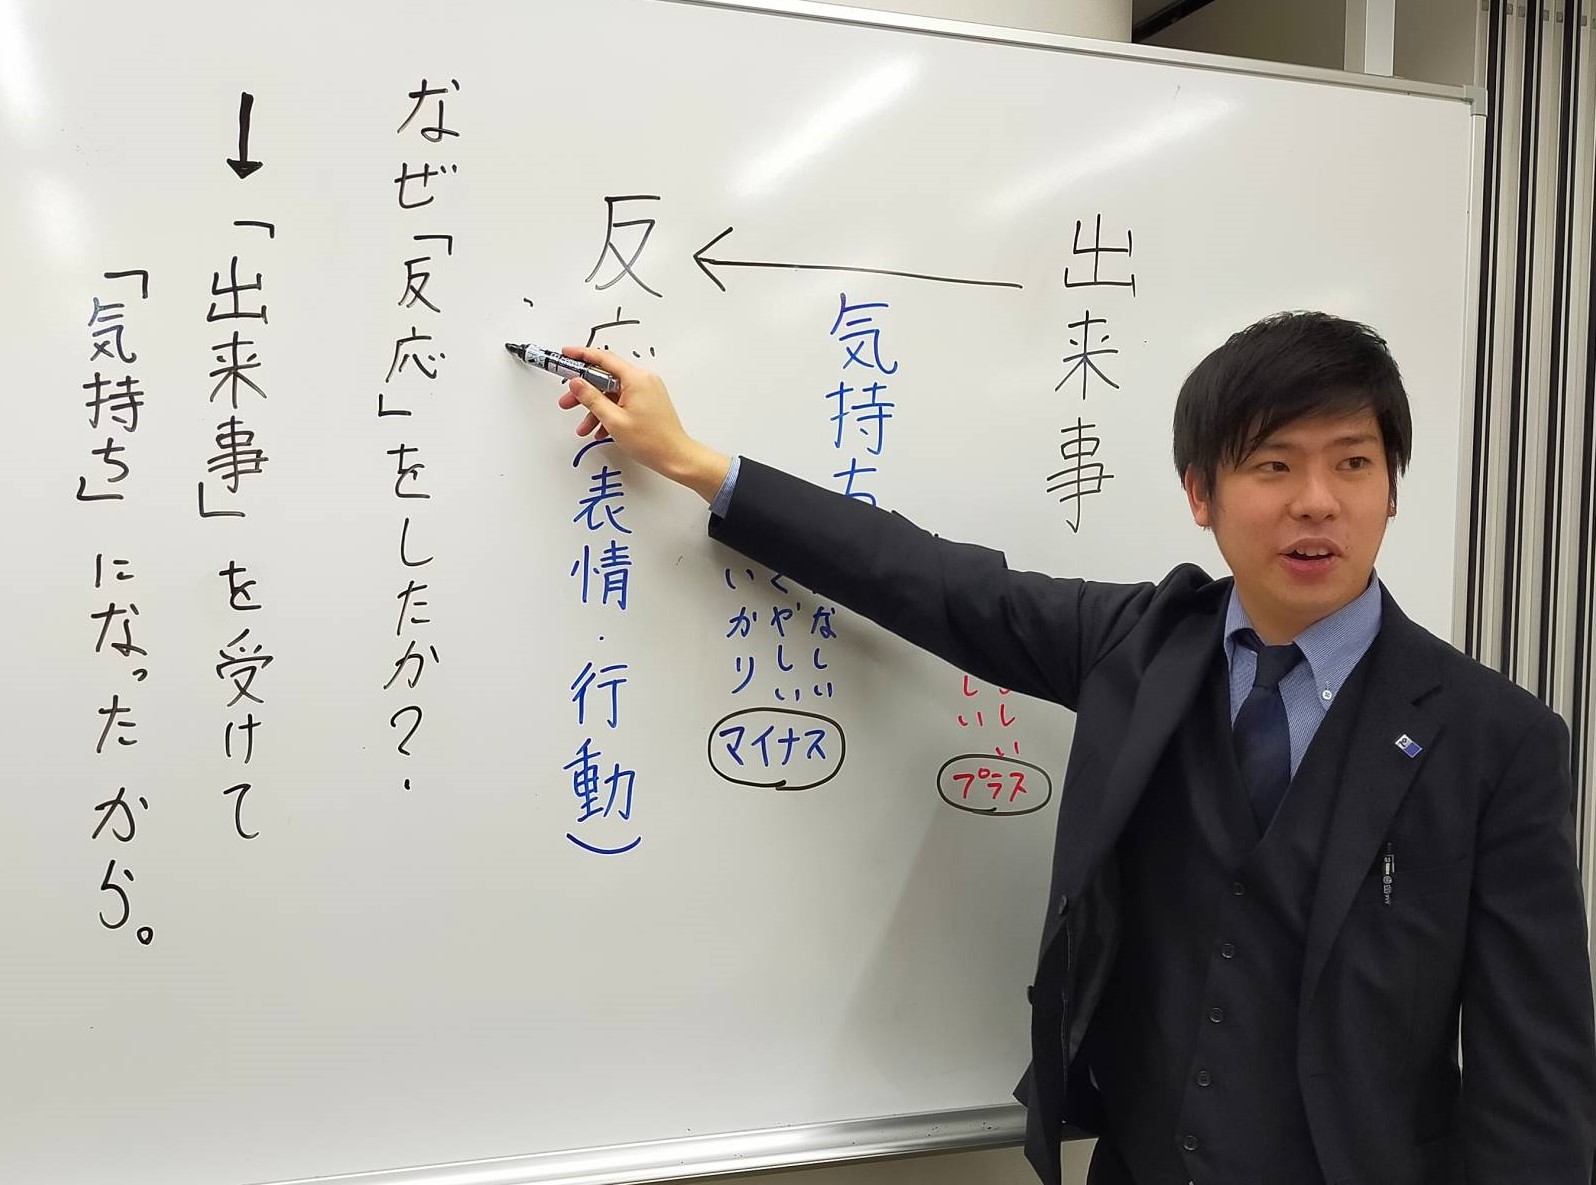 出来事
気持ち
しい
しい
プラス
なしい
くやしい
いかり
マイナス
反応(表情・行動)
なぜ「反応」をしたか?
↓「出来事」を受けて
「気持ち」になったから。